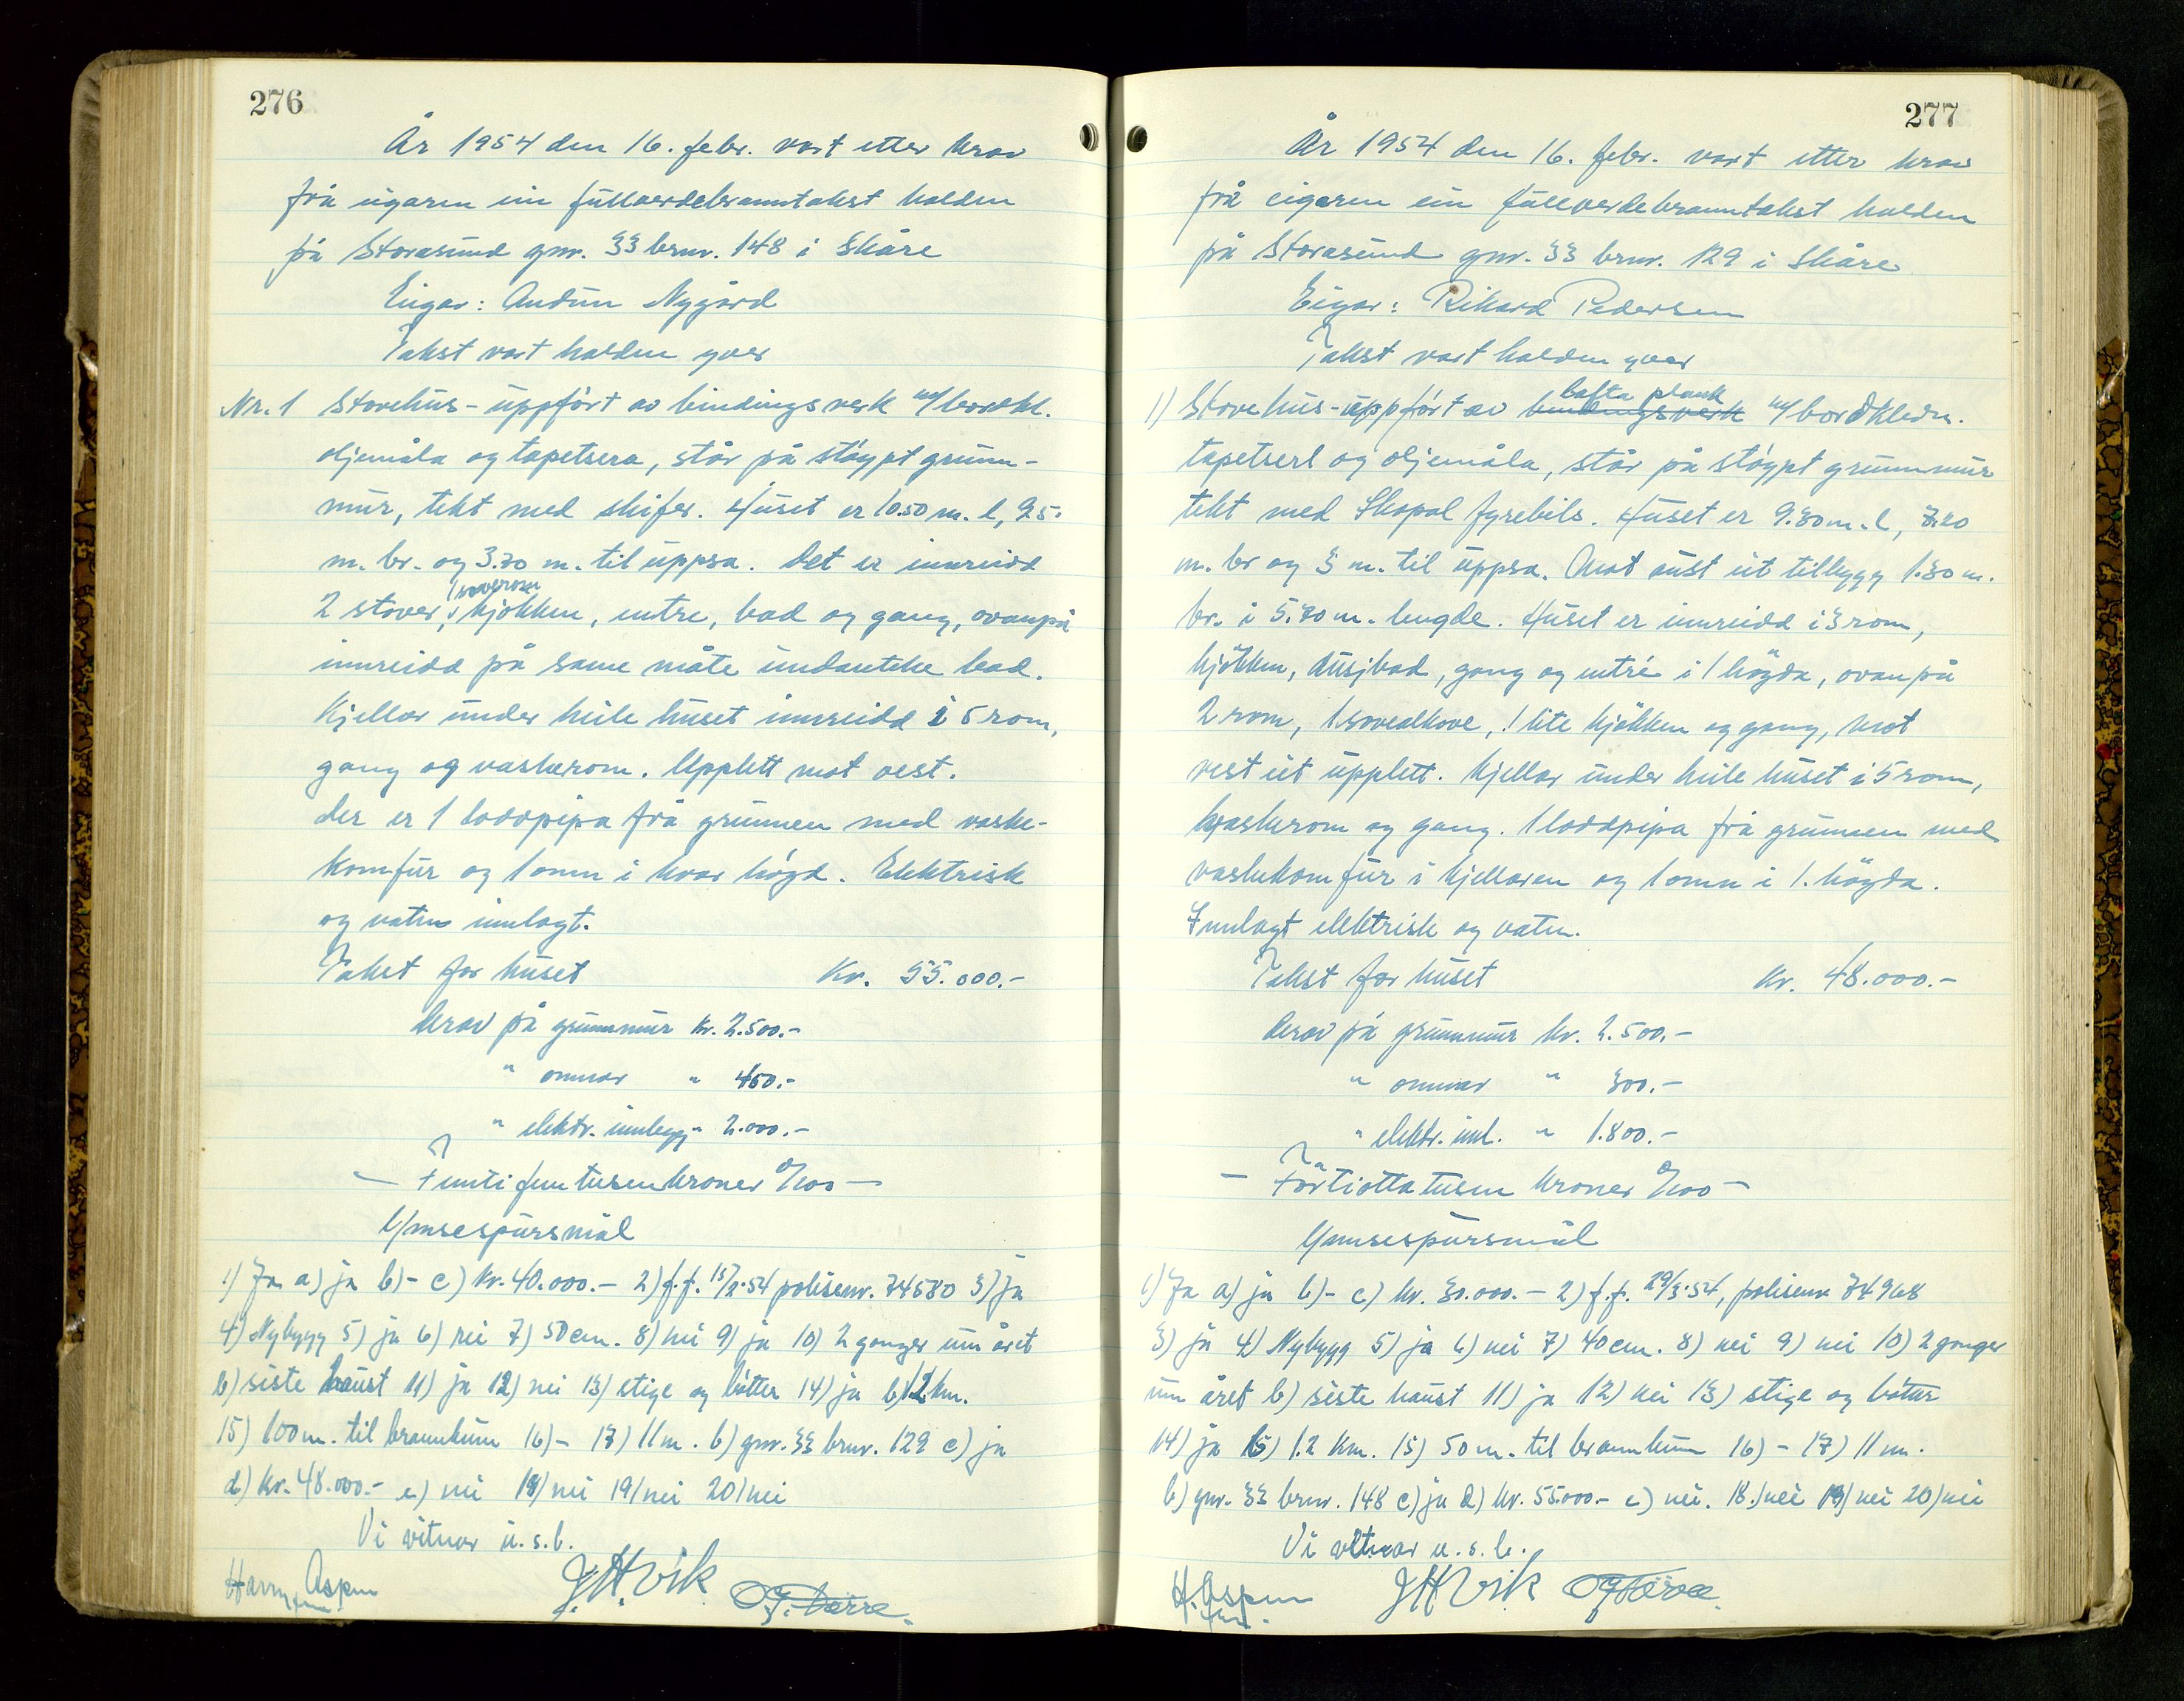 276
År 1954 den 16. febr. vart etter krav
frå eigaren ein fullverdebranntakst halden
på Storasund gnr. 33 brnr. 148 i Skåre
Eigar: Audun Nygård
Takst vart halden yver
Nr. 1 Stovehus - uppført av bindingsverk m/bordkl.
oljemåla og tapetsera, står på støypt grunn-
mur, tekt med skifer. Huset er 10.50 m. l, 9.5.
m. br. og 3.70 m. til uppsa. Det er innreidd
1 soverom
2 stover, kjøkken, entre, bad og gang, ovanpå
innreidd på same måte undanteke bad.
Kjellar under heile huset innreidd i 5 rom,
gang og vaskerom. Upplett mot vest.
Der er 1 loddpipa frå grunnen med vaske-
komfur og 1 omn i kvar høgd. Elektrisk
og vatn innlagt.
Takst for huset Kr. 55.000.-
Krav på grunnmur kr. 2.500.-
" omnar " 450.-
" elektr. innlegg " 2.000.-
- Femti fem tusen kroner 0/100 -
Ymsespursmål
1) Ja a) ja b) - c) kr. 40.000.- 2) f.f. 15/2-54 polisenr. 74580 3) ja
4) Nybygg 5) ja 6) nei 7) 50 cm. 8) nei 9) ja 10) 2 gonger um året
b) siste haust 11) ja 12) nei 13) stige og bøtter 14) ja b) 1.2 km.
15) 100 m. til brannkum 16) - 17) 11 m. b) gnr. 33 brnr. 129 c) ja
d) kr. 48.000.- e) nei 18) nei 19) nei 20) nei
Vi vitnar u.s.b.
Harry Aspen J.H. Vik
277
År 1954 den 16. febr. vart etter krav
frå eigaren ein fullverdebranntakst halden
på Storasund gnr. 33 brnr. 129 i Skåre
Eigar: Rikard Pedersen
Takst vart halden yver
lafta plank
1) Stovehus - uppført av bindingsverk m/bordkledn.
tapetsert og oljemåla, står på støypt grunnmur
tekt med Skopal fyrebils. Huset er 9.30 m. l, 7.20
m. br og 3 m. til uppsa. Mot aust eit tilbygg 1.30 m.
br. i 5.70 m. lengde. Huset er innreidd i 3 rom,
kjøkken, dusjbad, gang og entré i 1 høgda, ovanpå
2 rom, 1 sovealkove, 1 lite kjøkken og gang, mot
vest eit upplett. Kjellar under heile huset i 5 rom,
vaskerom og gang. 1 loddpipa frå grunnen med
vaskekomfur i kjellaren og 1 omn i 1. høgda.
Innlagt elektrisk og vatn.
Takst for huset kr. 48.000.-
Derav på grunnmur kr. 2.500.-
" omnar " 300.-
" elektr. innl. " 1.800.-
- Førtiotta tusen kroner 0/100 -
Ymsespursmål
1) Ja a) ja b) - c) kr. 30.000.- 2) f.f. 29/3-54, polisenr 74968
3) ja 4) Nybygg 5) ja 6) nei 7) 40 cm. 8) nei 9) nei 10) 2 gonger
um året b) siste haust 11) ja 12) nei 13) stige og bøtter
14) ja b) 1.2 km. 15) 50 m. til brannkum 16) - 17) 11 m.
b) gnr. 33 brnr. 148 c) ja d) kr. 55.000.- e) nei. 18.) nei 19) nei 20) nei
Vi vitnar u.s.b.
H. Aspen J H Vik